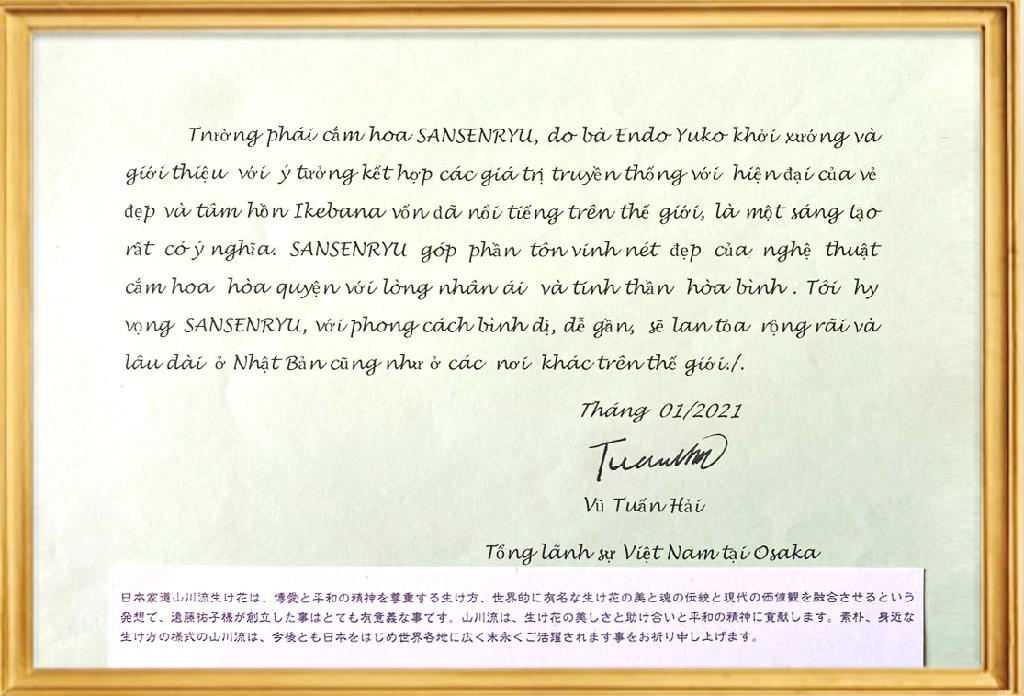 Trường phái cắm hoa SANSENRYU, do bà Endo Yuko khởi xướng và
giới thiệu với ý tưởng kết hợp các giá trị truyền thống với hiện đại của vẻ
đẹp và tâm hồn Ikebana vốn đã nổi tiếng trên thế giới, là một sáng tạo
rất có ý nghĩa. SANSENRYU góp phần tôn vinh nét đẹp của nghệ thuật
cắm hoa hòa quyện với lòng nhân ái và tinh thần hòa bình. Tôi hy
vọng SANSENRYU, với phong cách bình dị, dễ gần, sẽ lan tỏa rộng rãi và
lâu dài ở Nhật Bản cũng như ở các nơi khác trên thế giới./.
Tháng 01/2021
Vũ Tuấn Hải
Tổng lãnh sự Việt Nam tại Osaka
日本家道山川流生け花は、博愛と平和の精神を尊重する生け方、世界的に有名な生け花の美と魂の伝統と現代の価値観を融合させるという
発想で、遠藤祐子様が創立した事はとても有意義な事です。山川流は、生け花の美しさと助け合いと平和の精神に貢献します。素朴、身近な
生け方の様式の山川流は、今後とも日本をはじめ世界各地に広く末永くご活躍されます事をお祈り申し上げます。